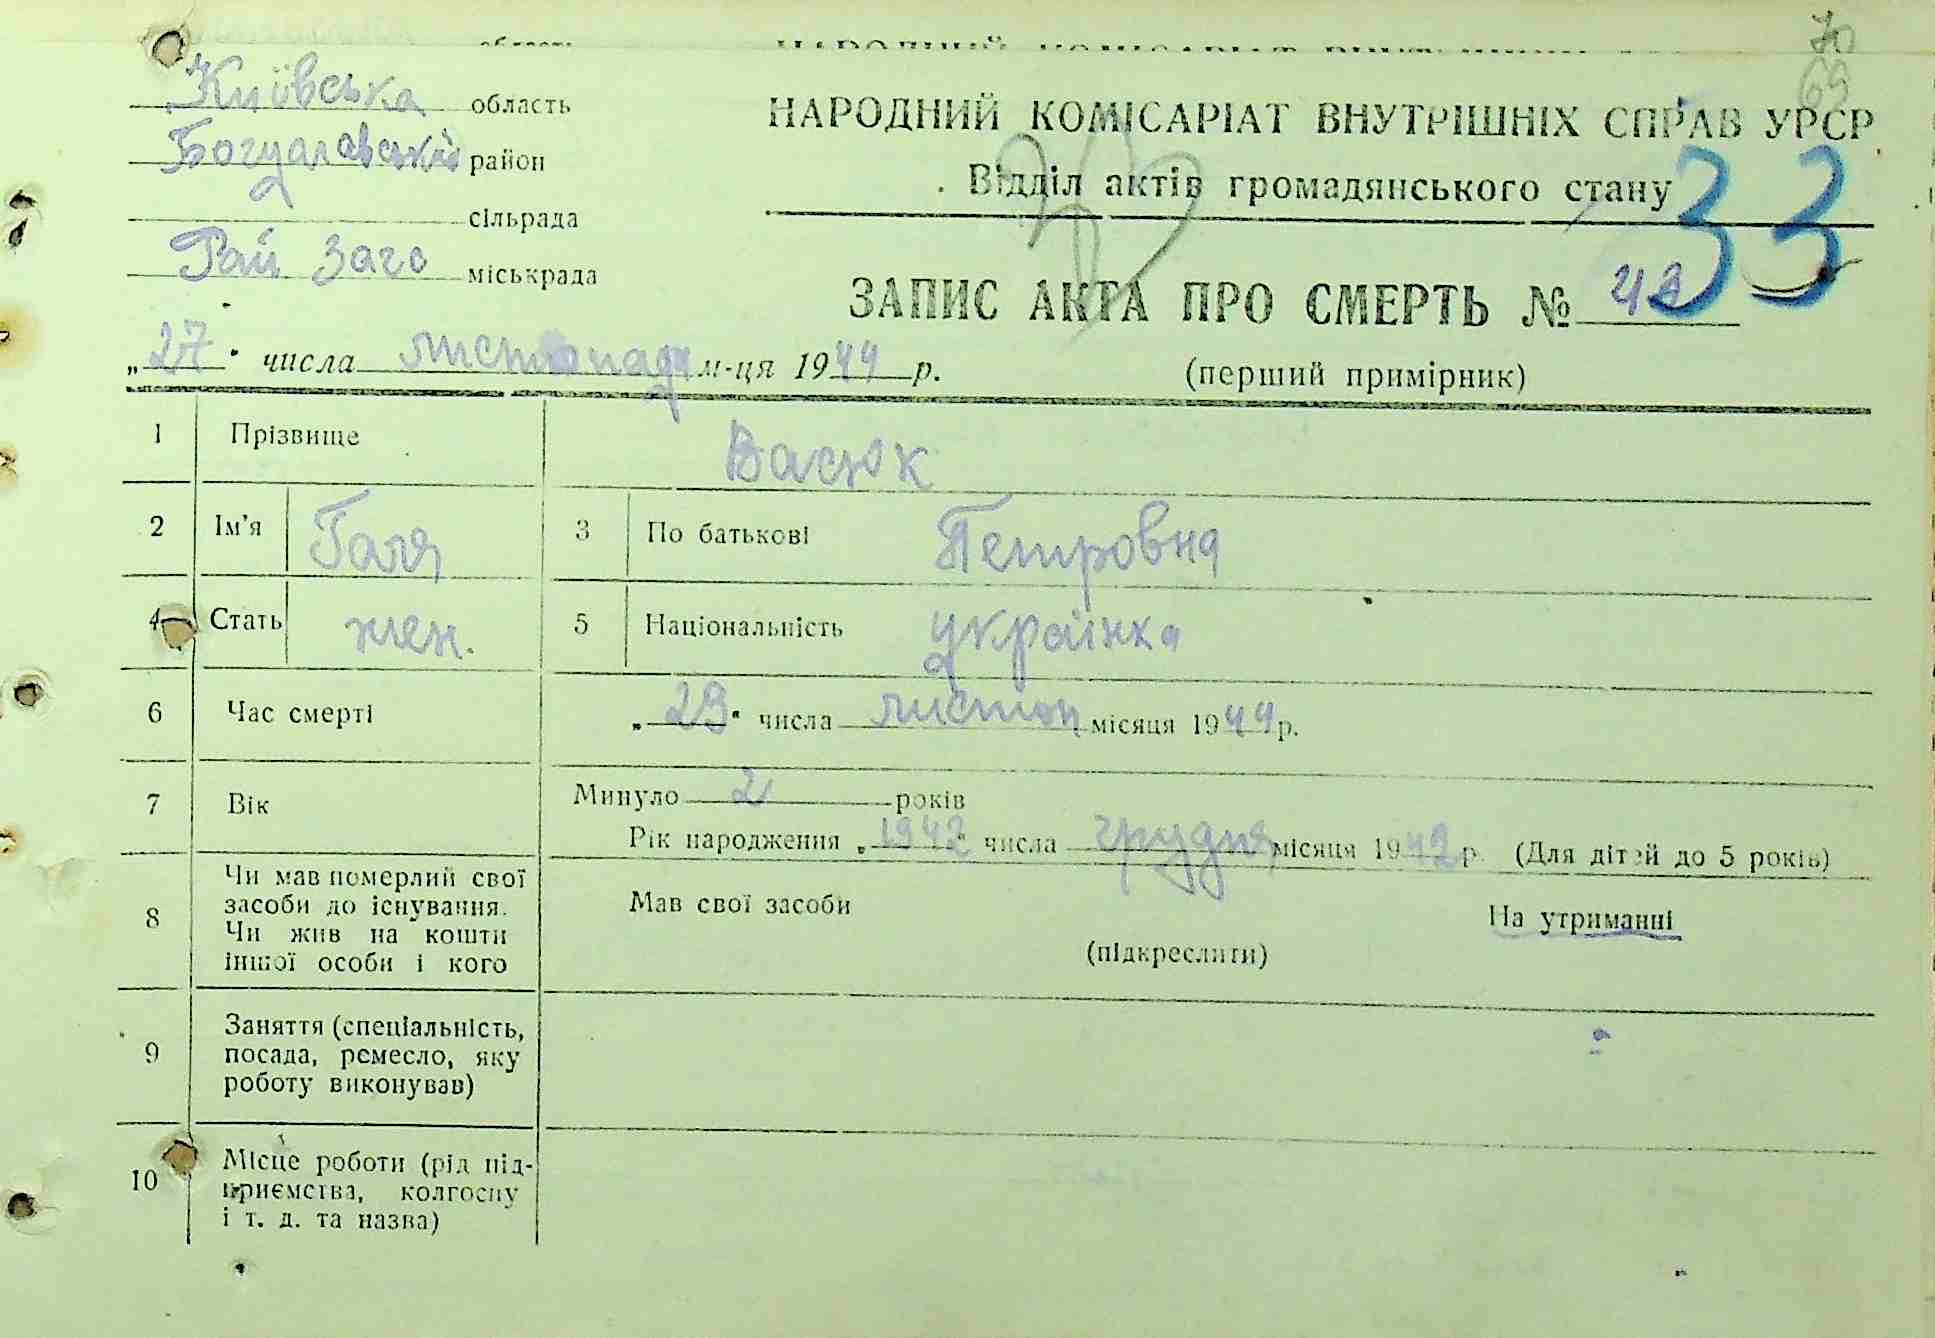 70
69
Київська область
Богуславський район
сільрада
Рай Загс міськрада
НАРОДНИЙ КОМІСАРІАТ ВНУТРІШНІХ СПРАВ УРСР
Відділ актів громадянського стану
33
ЗАПИС АКТА ПРО СМЕРТЬ №
(перший примірник)
„27“ числа листопада м-ця 1944 р.
1 Прізвище Васюк
2 Ім’я Галя 3 По батькові Петровна
4 Стать жен. 5 Національність українка
6 Час смерті „23“ числа листоп місяця 1944 р.
7 Вік Минуло 2 років
Рік народження „1942“ числа грудня місяця 1942 р. (Для дітей до 5 років)
8 Чи мав померлий свої
засоби до існування.
Чи жив на кошти
іншої особи і кого
Мав свої засоби На утриманні
(підкреслити)
9 Заняття (спеціальність,
посада, ремесло, яку
роботу виконував)
10 Місце роботи (рід під-
приємства, колгоспу
і т. д. та назва)